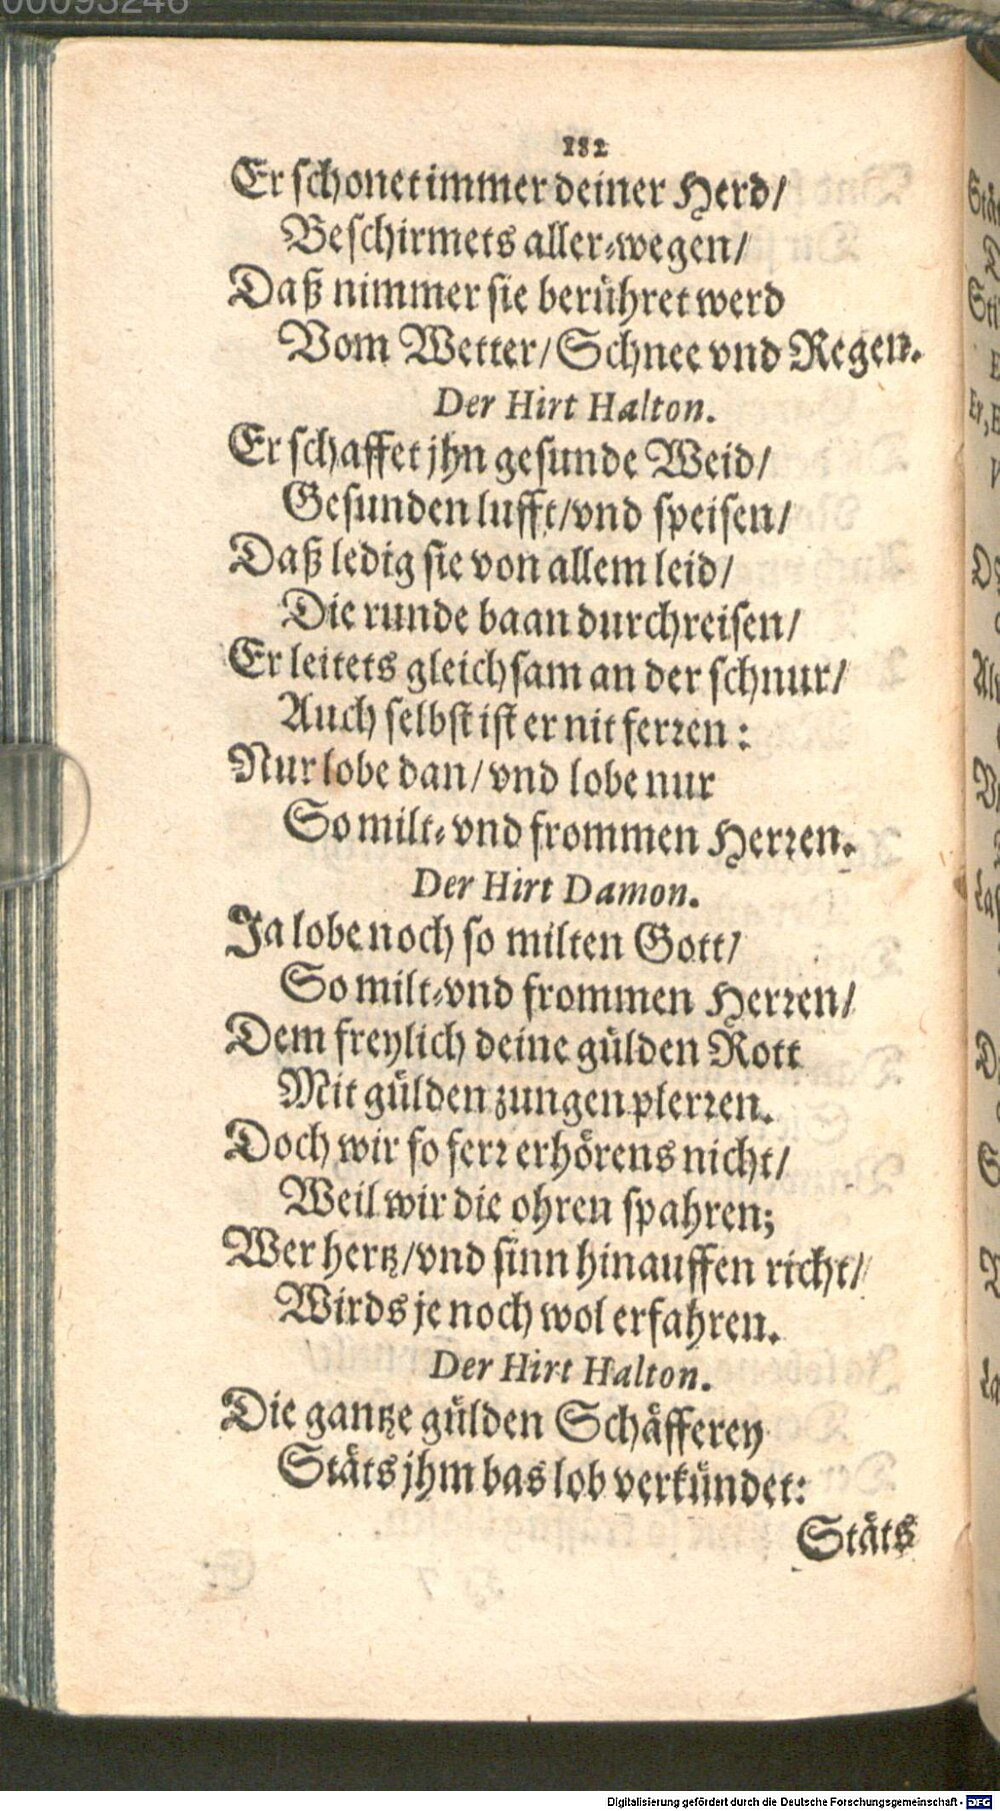 00093246
182
Er schonet immer deiner Herd/
Beschirmets aller-wegen/
Daß nimmer sie berühret werd
Vom Wetter/ Schnee vnd Regen.
Der Hirt Halton.
Er schaffet jhn gesunde Weid/
Gesunden lufft/ vnd speisen/
Daß ledig sie von allem leid/
Die runde baan durchreisen/
Er leitets gleichsam an der schnur/
Auch selbst ist er nit ferren:
Nur lobe dan/ vnd lobe nur
So milt- vnd frommen Herren.
Der Hirt Damon.
Ja lobe noch so milten Gott/
So milt-vnd frommen Herren/
Dem freylich deine gülden Rott
Mit gülden zungen plerren.
Doch wir so ferr erhörens nicht/
Weil wir die ohren spahren;
Wer hertz/ vnd sinn hinauffen richt/
Wirds je noch wol erfahren.
Der Hirt Halton.
Die gantze gülden Schäfferey
Stäts jhm das lob verkündet:
Stäts
Digitalisierung gefördert durch die Deutsche Forschungsgemeinschaft - DFG